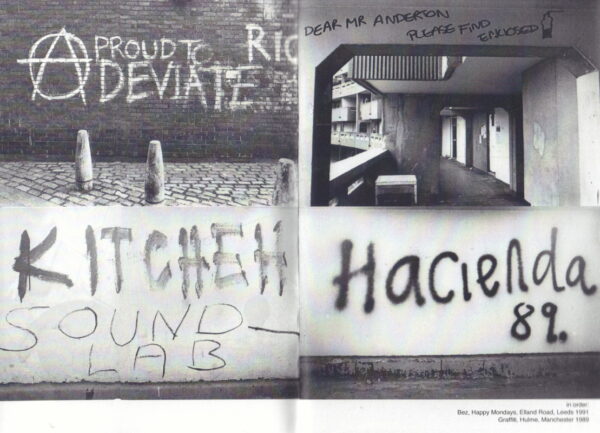 PROUD TO
DEVIATE
RIO
DEAR MR ANDERTON
PLEASE FIND
ENCLOSED
KITCHEN
SOUND-
LAB
Hacienda
89.
in order:
Bez, Happy Mondays, Elland Road, Leeds 1991
Graffiti, Hulme, Manchester 1989